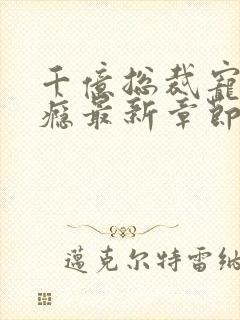 千億總裁寵
癮最新章節
邁克尔特雷纳